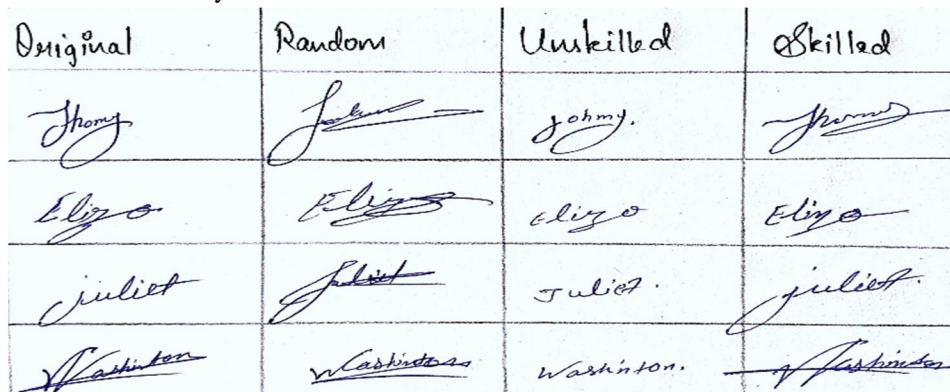 Original Random Unskilled Skilled
Jhony johmy.
Elizo Elizo Elizo Elizo
juliet Juliet Juliet. juliet.
Washinton Washinton Washinton. Washinton